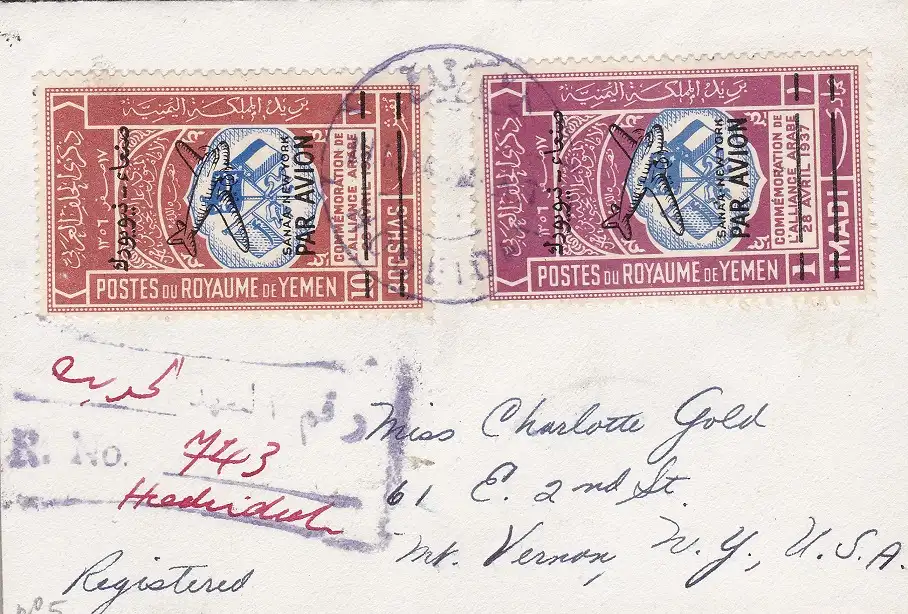 بريد المملكة اليمنية
ذكرى الحلف العربي
١٧ صفر ١٣٥٦
صنعاء - نيويورك
SANAA-NEW YORK
PAR AVION
COMMÉMORATION DE
L'ALLIANCE ARABE
28 AVRIL 1937
10 BOGSHAS
POSTES DU ROYAUME DE YEMEN
بريد المملكة اليمنية
ذكرى الحلف العربي
١٧ صفر ١٣٥٦
صنعاء - نيويورك
SANAA-NEW YORK
PAR AVION
COMMÉMORATION DE
L'ALLIANCE ARABE
28 AVRIL 1937
1 IMADI
POSTES DU ROYAUME DE YEMEN
R. No.
743
Hodeidah
Miss Charlotte Gold
61 E. 2nd St.
Mt. Vernon, N.Y., U.S.A.
Registered
No 5